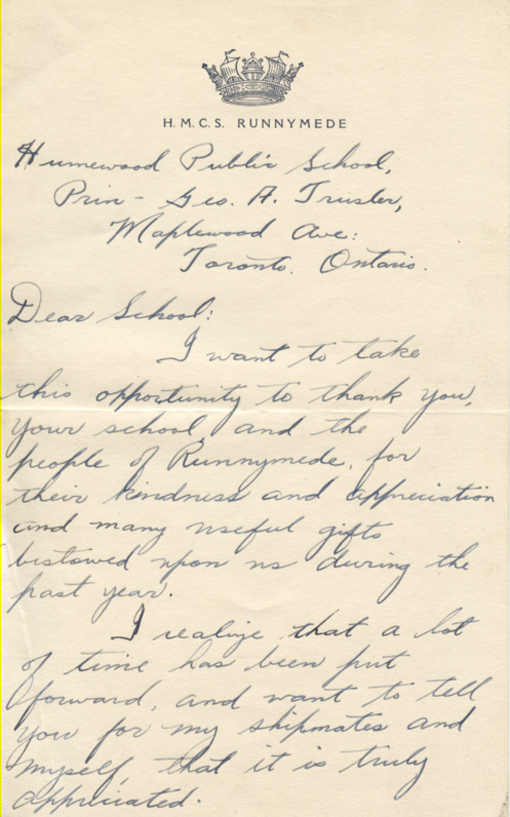 H.M.C.S. RUNNYMEDE
Humewood Public School,
Prin - Geo. A. Trusler,
Maplewood Ave:
Toronto. Ontario.
Dear School:
I want to take
this opportunity to thank you,
your school, and the
people of Runnymede, for
their kindness and appreciation
and many useful gifts
bestowed upon us during the
past year.
I realize that a lot
of time has been put
forward, and want to tell
you for my shipmates and
myself, that it is truly
appreciated.